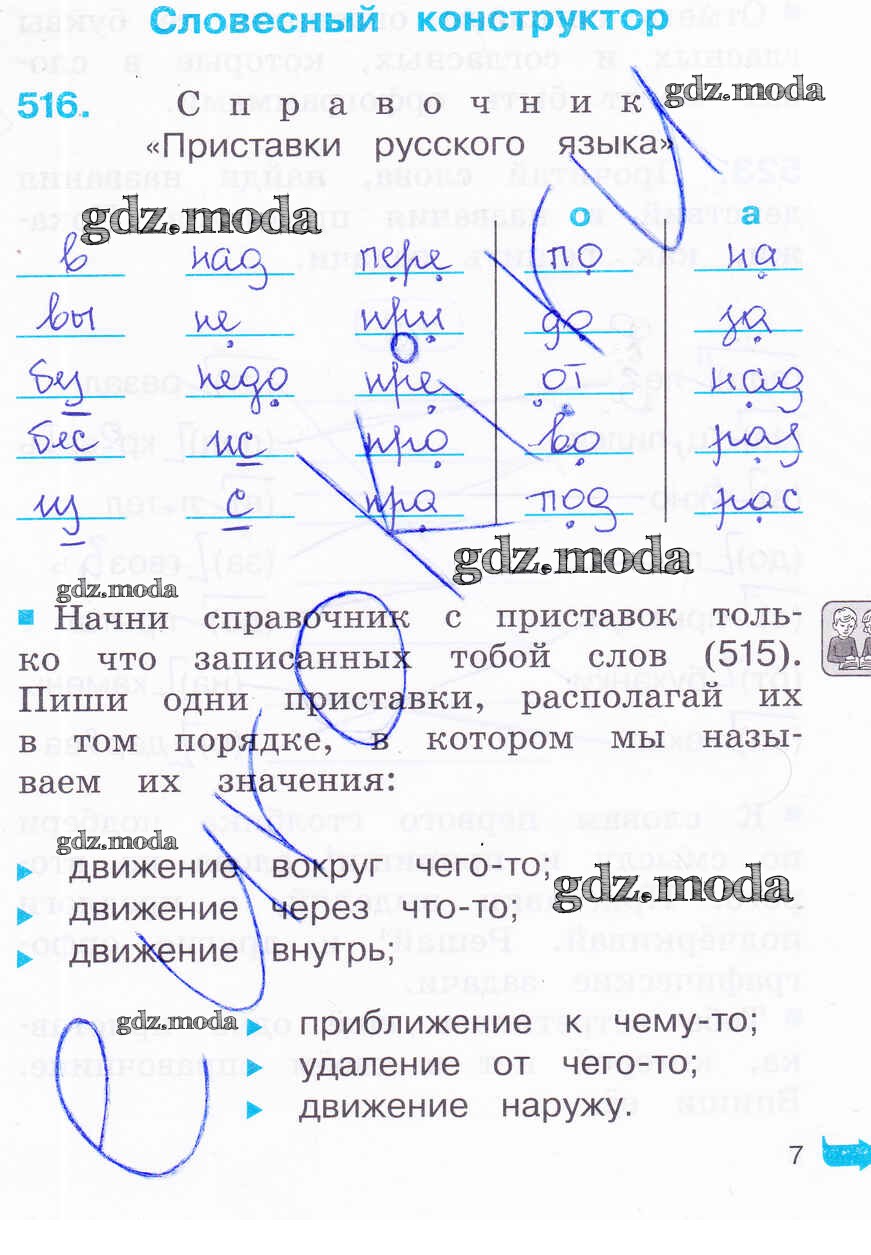 Словесный конструктор
516. Справочник
gdz.moda
«Приставки русского языка»
gdz.moda
о а
в над пере по на
вы не при до за
без недо пре от над
бес ис про во раз
из с пра под рас
gdz.moda
gdz.moda
Начни справочник с приставок толь-
ко что записанных тобой слов (515).
Пиши одни приставки, располагай их
в том порядке, в котором мы назы-
ваем их значения:
gdz.moda
движение вокруг чего-то;
gdz.moda
движение через что-то;
движение внутрь;
gdz.moda
приближение к чему-то;
удаление от чего-то;
движение наружу.
7